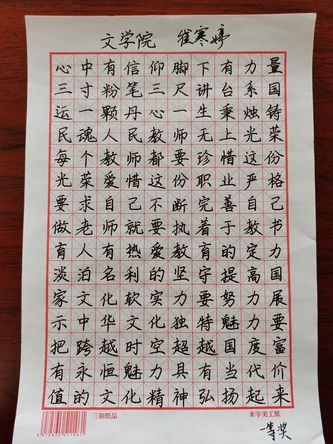 文学院 崔寒婷
心中有信仰脚下有力量
三寸粉笔三尺讲台系国
运一颗丹心一生秉烛铸
民魂人民教师无上光荣
每个教师都要珍惜这份
光荣爱惜这份职业严格
要求自己不断完善自己
做老师就要执着于教书
育人有热爱教育的定力
淡泊名利的坚守提高国
家文化软实力要努力展
示中华文化独特魅力要
把跨越时空超越国度富
有永恒魅力具有当代价
值的文化精神弘扬起来
三和纸品 米字美工纸
一等奖